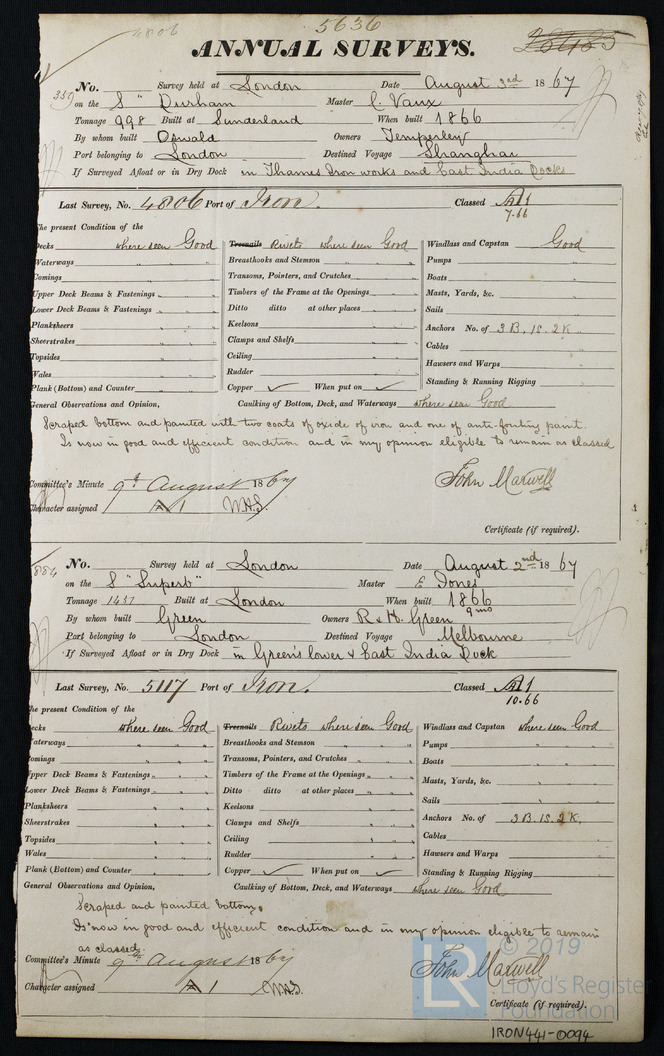 4806
5636
ANNUAL SURVEYS.
No. Survey held at London Date August 3rd 1867
on the S "Durham Master C. Vaux
Tonnage 998 Built at Sunderland When built 1866
By whom built Oswald Owners Temperley
Port belonging to London Destined Voyage Shanghai
If Surveyed Afloat or in Dry Dock in Thames Iron works and East India Docks
Last Survey, No. 4806 Port of Iron. Classed A1
7.66
The present Condition of the
Decks where seen Good Treenails Rivets where seen Good Windlass and Capstan Good
Waterways Breasthooks and Stemson Pumps
Comings Transoms, Pointers, and Crutches Boats
Upper Deck Beams & Fastenings Timbers of the Frame at the Openings Masts, Yards, &c.
Lower Deck Beams & Fastenings Ditto ditto at other places Sails
Planksheers Keelsons Anchors No. of 3 B. 1S. 2K
Sheerstrakes Clamps and Shelfs Cables
Topsides Ceiling Hawsers and Warps
Wales Rudder Standing & Running Rigging
Plank (Bottom) and Counter Copper ✓ When put on ✓
General Observations and Opinion, Caulking of Bottom, Deck, and Waterways where seen Good
Scraped bottom and painted with two coats of oxide of iron and one of anti-fouling paint.
Is now in good and efficient condition and in my opinion eligible to remain as classed
Committee's Minute 9th August 1867 John Maxwell
Character assigned A1 W.H.S.
Certificate (if required).
No. Survey held at London Date August 2nd 1867
on the S "Superb" Master E Jones
Tonnage 1451 Built at London When built 1866
9 mo
By whom built Green Owners R & H. Green
Port belonging to London Destined Voyage Melbourne
If Surveyed Afloat or in Dry Dock in Green's lower & East India Dock
Last Survey, No. 5117 Port of Iron. Classed A1
10.66
The present Condition of the
Decks where seen Good Treenails Rivets where seen Good Windlass and Capstan where seen Good
Waterways Breasthooks and Stemson Pumps
Comings Transoms, Pointers, and Crutches Boats
Upper Deck Beams & Fastenings Timbers of the Frame at the Openings Masts, Yards, &c.
Lower Deck Beams & Fastenings Ditto ditto at other places Sails
Planksheers Keelsons Anchors No. of 3 B. 1S. 2K.
Sheerstrakes Clamps and Shelfs Cables
Topsides Ceiling Hawsers and Warps
Wales Rudder Standing & Running Rigging
Plank (Bottom) and Counter Copper ✓ When put on ✓
General Observations and Opinion, Caulking of Bottom, Deck, and Waterways where seen Good
Scraped and painted bottom.
Is now in good and efficient condition and in my opinion eligible to remain
as classed.
Committee's Minute 9th August 1867 John Maxwell
Character assigned A1 W.H.S.
Certificate (if required).
LR © 2019
Lloyd's Register
Foundation
IRON441-0094